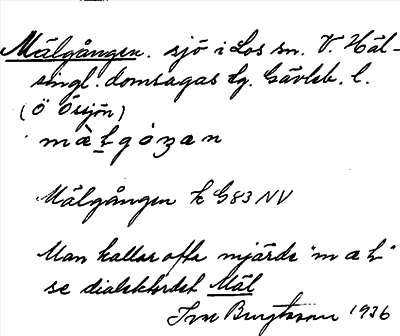 Mälgången. sjö i Los sn. V. Häl-
singl. domsagas tg. Gävleb. l.
(Ö Örsjön)
Mälgången k G83 NV
Man kallar ofta mjärde "mæL"
se dialektordet Mäl
Ivar Bengtsson 1936